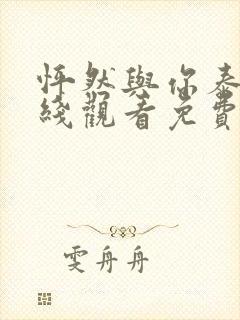 怦然與你泰
綫觀看免費
雯舟舟